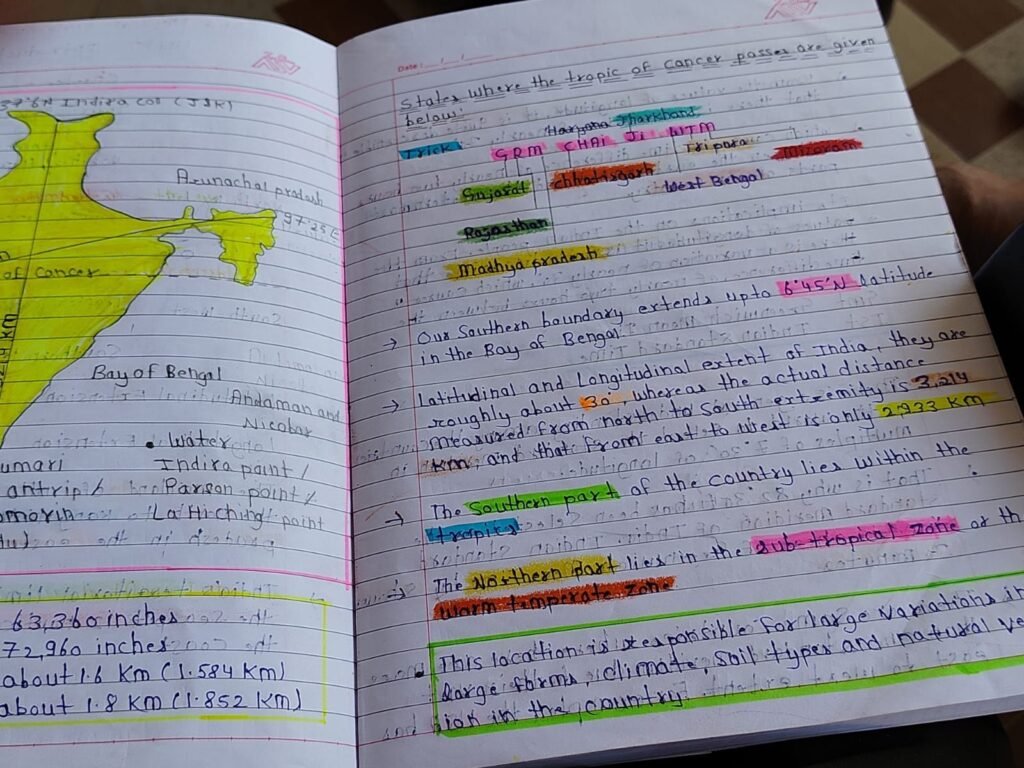 37°6'N Indira Col (J&K)
Arunachal pradesh
97°25'E
of Cancer
3214 KM
Bay of Bengal
Andaman and
Nicobar
• Water
umari
Indira point /
Parson point /
omorin
La Hiching point
63,360 inches
72,960 inches
about 1.6 Km (1.584 Km)
about 1.8 Km (1.852 Km)
Date: / /
States where the tropic of cancer passes are given
below:
Haryana Jharkhand
Trick
GRM CHAI Ji WTM
Tripura
Mizoram
Gujarat
Chhattisgarh
West Bengal
Rajasthan
Madhya pradesh
→ Our Southern boundary extends upto 6°45'N latitude
in the Bay of Bengal.
→ Latitudinal and Longitudinal extent of India, they are
roughly about 30° whereas the actual distance
measured from north to South extremity is 3,214
Km, and that from east to west is only 2933 KM
→ The Southern part of the country lies within the
tropics
→ The Northern part lies in the sub-tropical zone or the
warm temperate zone
This location is responsible for large variations in
large forms, climate, soil types and natural ve
ion in the country.